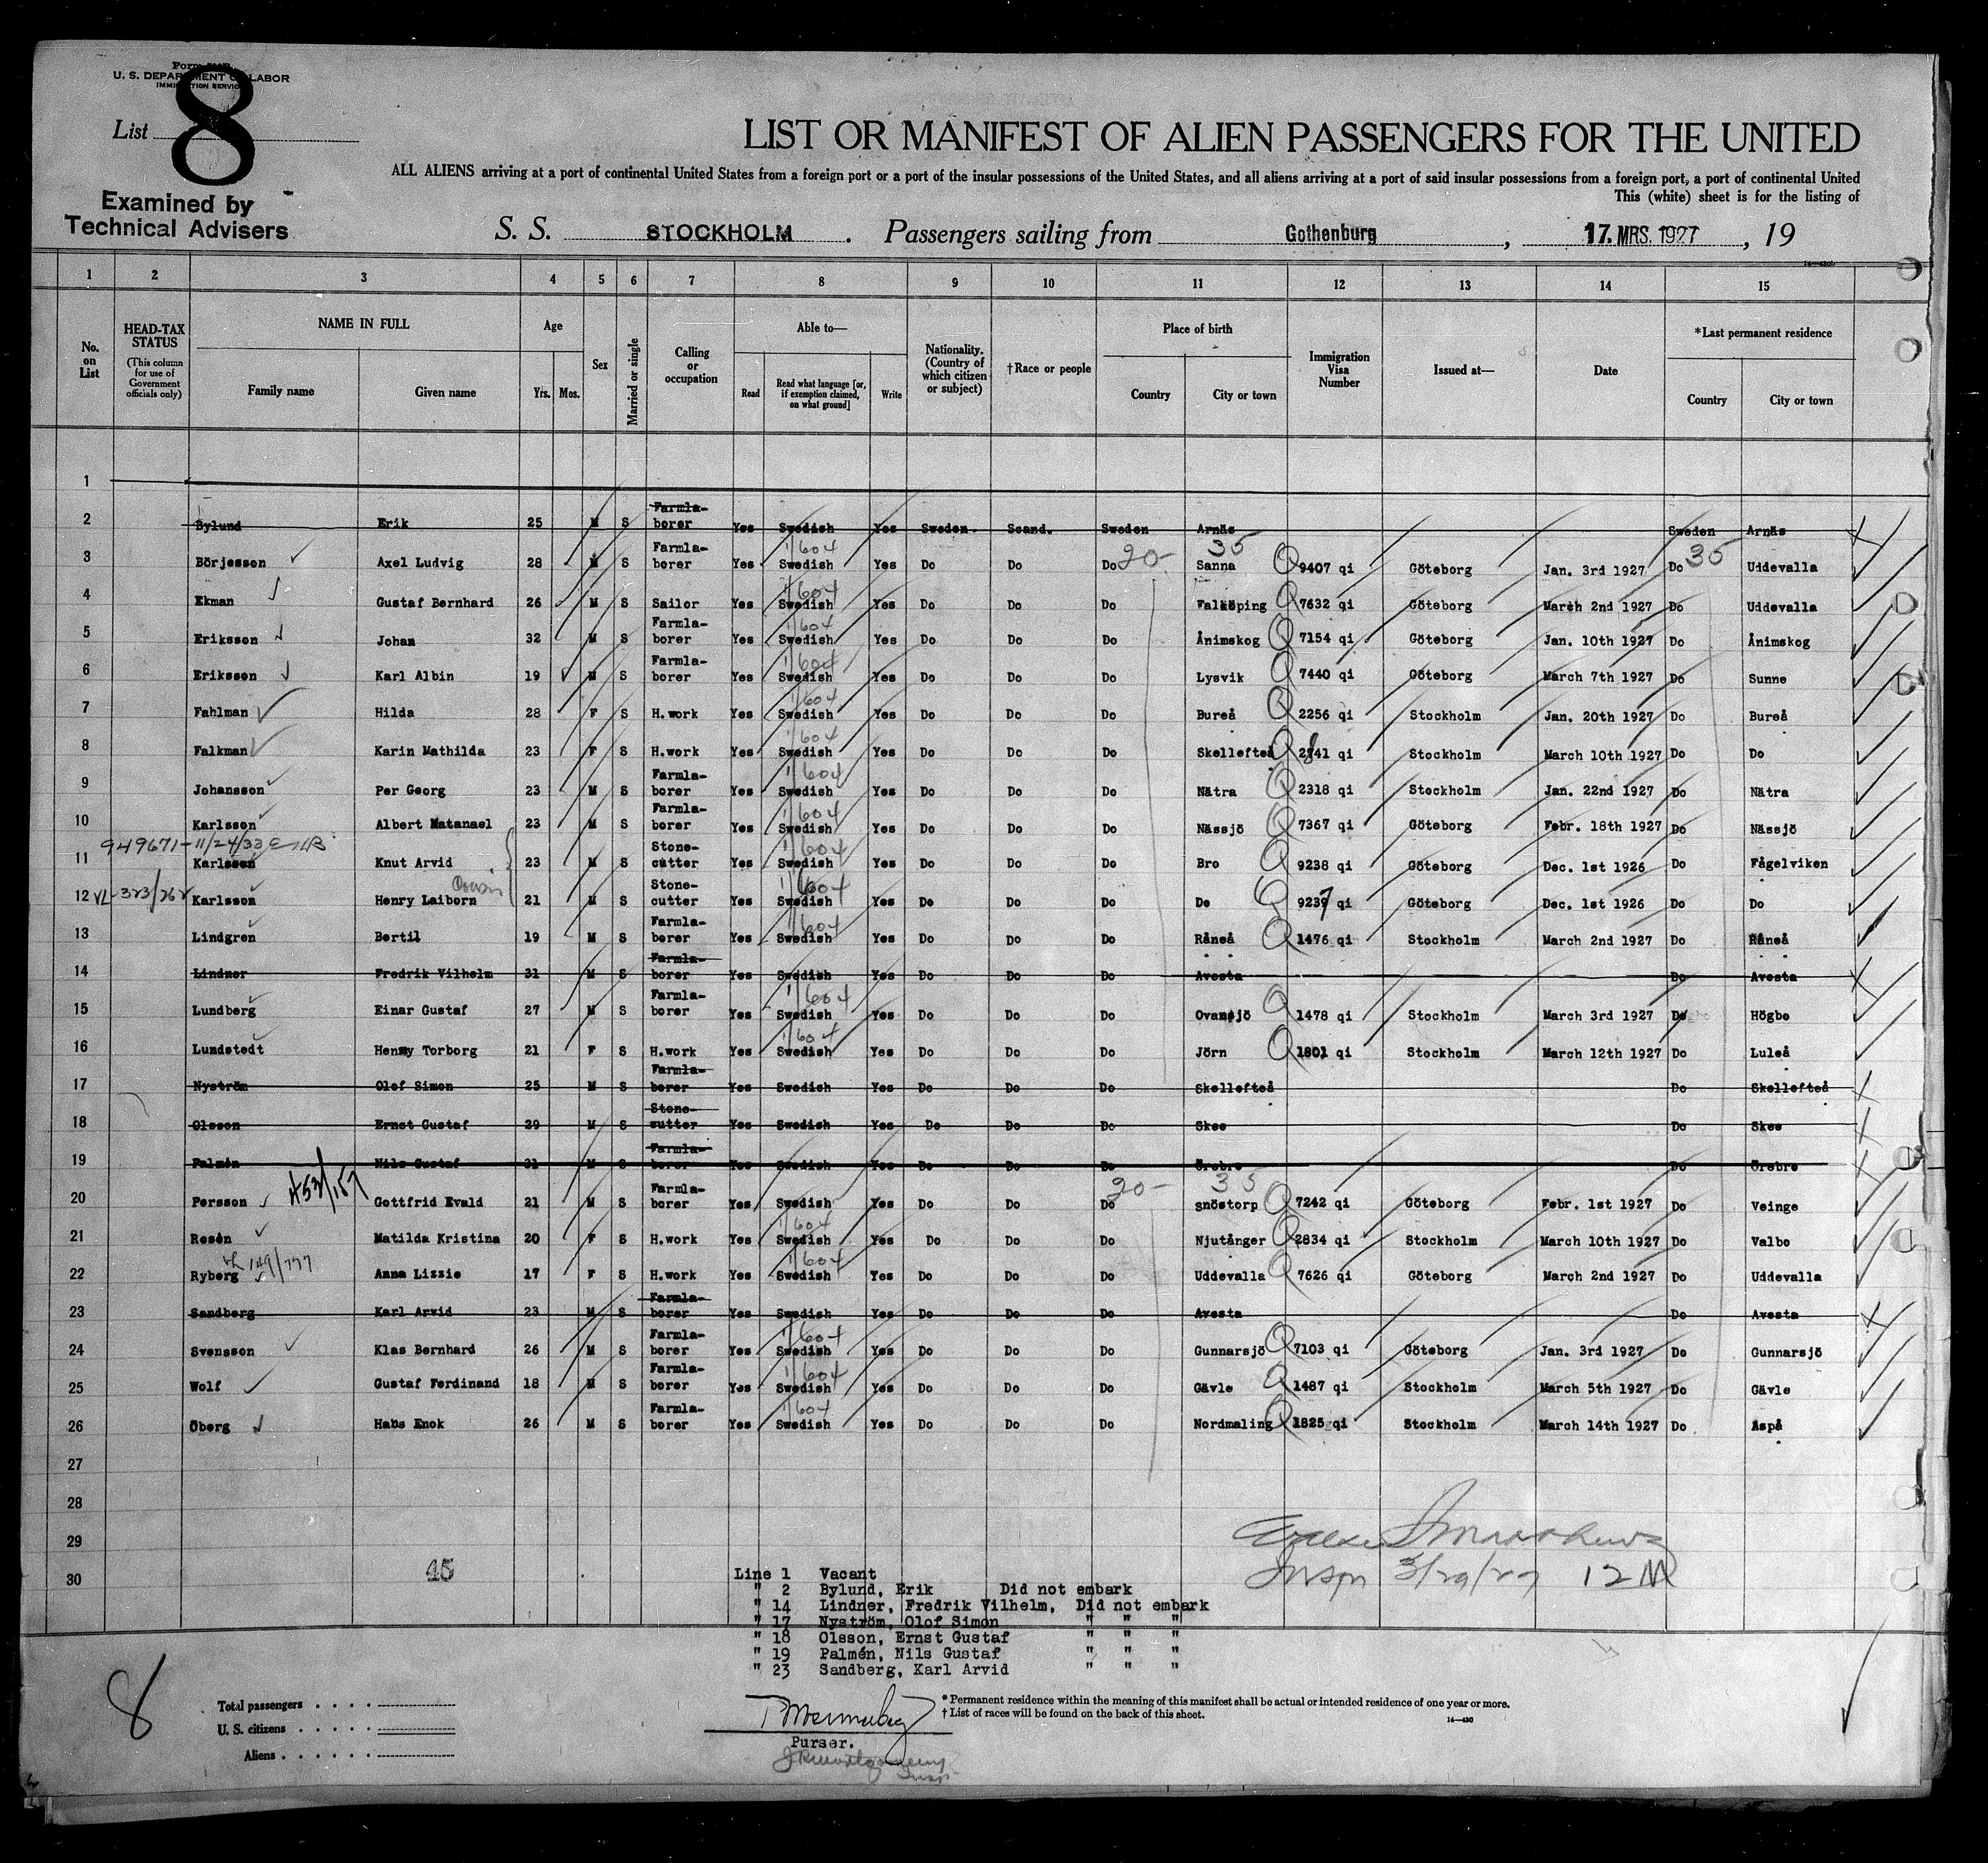 Form
U. S. DEPARTMENT OF LABOR
IMMIGRATION SERVICE
List 8
Examined by
Technical Advisers
LIST OR MANIFEST OF ALIEN PASSENGERS FOR THE UNITED
ALL ALIENS arriving at a port of continental United States from a foreign port or a port of the insular possessions of the United States, and all aliens arriving at a port of said insular possessions from a foreign port, a port of continental United
This (white) sheet is for the listing of
S. S. STOCKHOLM. Passengers sailing from Gothenburg, 17. MRS. 1927, 19
1 2 3 4 5 6 7 8 9 10 11 12 13 14 15
No. on List
HEAD-TAX STATUS (This column for use of Government officials only)
NAME IN FULL Family name Given name
Age Yrs. Mos.
Sex
Married or single
Calling or occupation
Able to— Read Read what language [or, if exemption claimed, on what ground] Write
Nationality. (Country of which citizen or subject)
†Race or people
Place of birth Country City or town
Immigration Visa Number
Issued at—
Date
*Last permanent residence Country City or town
1
2 Bylund Erik 25 M S Farmla-borer Yes Swedish Yes Sweden. Scand. Sweden Arnäs Sweden Arnäs
3 Börjesson Axel Ludvig 28 M S Farmla-borer Yes Swedish 1/604 Yes Do Do Do 20- Sanna 35 Q 9407 qi Göteborg Jan. 3rd 1927 Do 35 Uddevalla
4 Ekman Gustaf Bernhard 26 M S Sailor Yes Swedish 1/604 Yes Do Do Do Falköping Q 7632 qi Göteborg March 2nd 1927 Do Uddevalla
5 Eriksson Johan 32 M S Farmla-borer Yes Swedish 1/604 Yes Do Do Do Ånimskog Q 7154 qi Göteborg Jan. 10th 1927 Do Ånimskog
6 Eriksson Karl Albin 19 M S Farmla-borer Yes Swedish 1/604 Yes Do Do Do Lysvik Q 7440 qi Göteborg March 7th 1927 Do Sunne
7 Fahlman Hilda 28 F S H.work Yes Swedish 1/604 Yes Do Do Do Bureå Q 2256 qi Stockholm Jan. 20th 1927 Do Bureå
8 Falkman Karin Mathilda 23 F S H.work Yes Swedish 1/604 Yes Do Do Do Skellefteå Q 2841 qi Stockholm March 10th 1927 Do Do
9 Johansson Per Georg 23 M S Farmla-borer Yes Swedish 1/604 Yes Do Do Do Nätra Q 2318 qi Stockholm Jan. 22nd 1927 Do Nätra
10 Karlsson Albert Natanael 23 M S Farmla-borer Yes Swedish 1/604 Yes Do Do Do Nässjö Q 7367 qi Göteborg Febr. 18th 1927 Do Nässjö
949671-11/24/33
11 Karlsson Knut Arvid 23 M S Stone-cutter Yes Swedish 1/604 Yes Do Do Do Bro Q 9238 qi Göteborg Dec. 1st 1926 Do Fågelviken
12 VL-323/262 Karlsson Henry Laiborn Cousin 21 M S Stone-cutter Yes Swedish 1/604 Yes Do Do Do Do Q 9237 qi Göteborg Dec. 1st 1926 Do Do
13 Lindgren Bertil 19 M S Farmla-borer Yes Swedish 1/604 Yes Do Do Do Råneå Q 1476 qi Stockholm March 2nd 1927 Do Råneå
14 Lindner Fredrik Vilhelm 31 M S Farmla-borer Yes Swedish Yes Do Do Do Avesta Do Avesta
15 Lundberg Einar Gustaf 27 M S Farmla-borer Yes Swedish 1/604 Yes Do Do Do Ovansjö Q 1478 qi Stockholm March 3rd 1927 Do Högbo
16 Lundstedt Henny Torborg 21 F S H.work Yes Swedish 1/604 Yes Do Do Do Jörn Q 1801 qi Stockholm March 12th 1927 Do Luleå
17 Nyström Olof Simon 25 M S Farmla-borer Yes Swedish Yes Do Do Do Skellefteå Do Skellefteå
18 Olsson Ernst Gustaf 29 M S Stone-cutter Yes Swedish Yes Do Do Do Skee Do Skee
19 Palmén Nils Gustaf 31 M S Farmla-borer Yes Swedish Yes Do Do Do Örebro Do Örebro
20 Persson Gottfrid Evald 21 M S Farmla-borer Yes Swedish Yes Do Do Do 20- Snöstorp 35 Q 7242 qi Göteborg Febr. 1st 1927 Do Veinge
21 Resén Matilda Kristina 20 F S H.work Yes Swedish 1/604 Yes Do Do Do Njutånger Q 2834 qi Stockholm March 10th 1927 Do Valbo
VL 149/777
22 Ryberg Anna Lizzie 17 F S H.work Yes Swedish 1/604 Yes Do Do Do Uddevalla Q 7626 qi Göteborg March 2nd 1927 Do Uddevalla
23 Sandberg Karl Arvid 23 M S Farmla-borer Yes Swedish Yes Do Do Do Avesta Do Avesta
24 Svensson Klas Bernhard 26 M S Farmla-borer Yes Swedish 1/604 Yes Do Do Do Gunnarsjö Q 7103 qi Göteborg Jan. 3rd 1927 Do Gunnarsjö
25 Wolf Gustaf Ferdinand 18 M S Farmla-borer Yes Swedish 1/604 Yes Do Do Do Gävle Q 1487 qi Stockholm March 5th 1927 Do Gävle
26 Öberg Habs Enok 26 M S Farmla-borer Yes Swedish 1/604 Yes Do Do Do Nordmaling Q 1825 qi Stockholm March 14th 1927 Do Aspå
27
28
29
30
45
Insp 3/29/27 12 M
Line 1 Vacant
" 2 Bylund, Erik Did not embark
" 14 Lindner, Fredrik Vilhelm, Did not embark
" 17 Nyström, Olof Simon " " "
" 18 Olsson, Ernst Gustaf " " "
" 19 Palmén, Nils Gustaf " " "
" 23 Sandberg, Karl Arvid " " "
8
Total passengers . . . .
U. S. citizens . . . . .
Aliens . . . . . .
Purser.
Insp.
* Permanent residence within the meaning of this manifest shall be actual or intended residence of one year or more.
† List of races will be found on the back of this sheet.
14—430